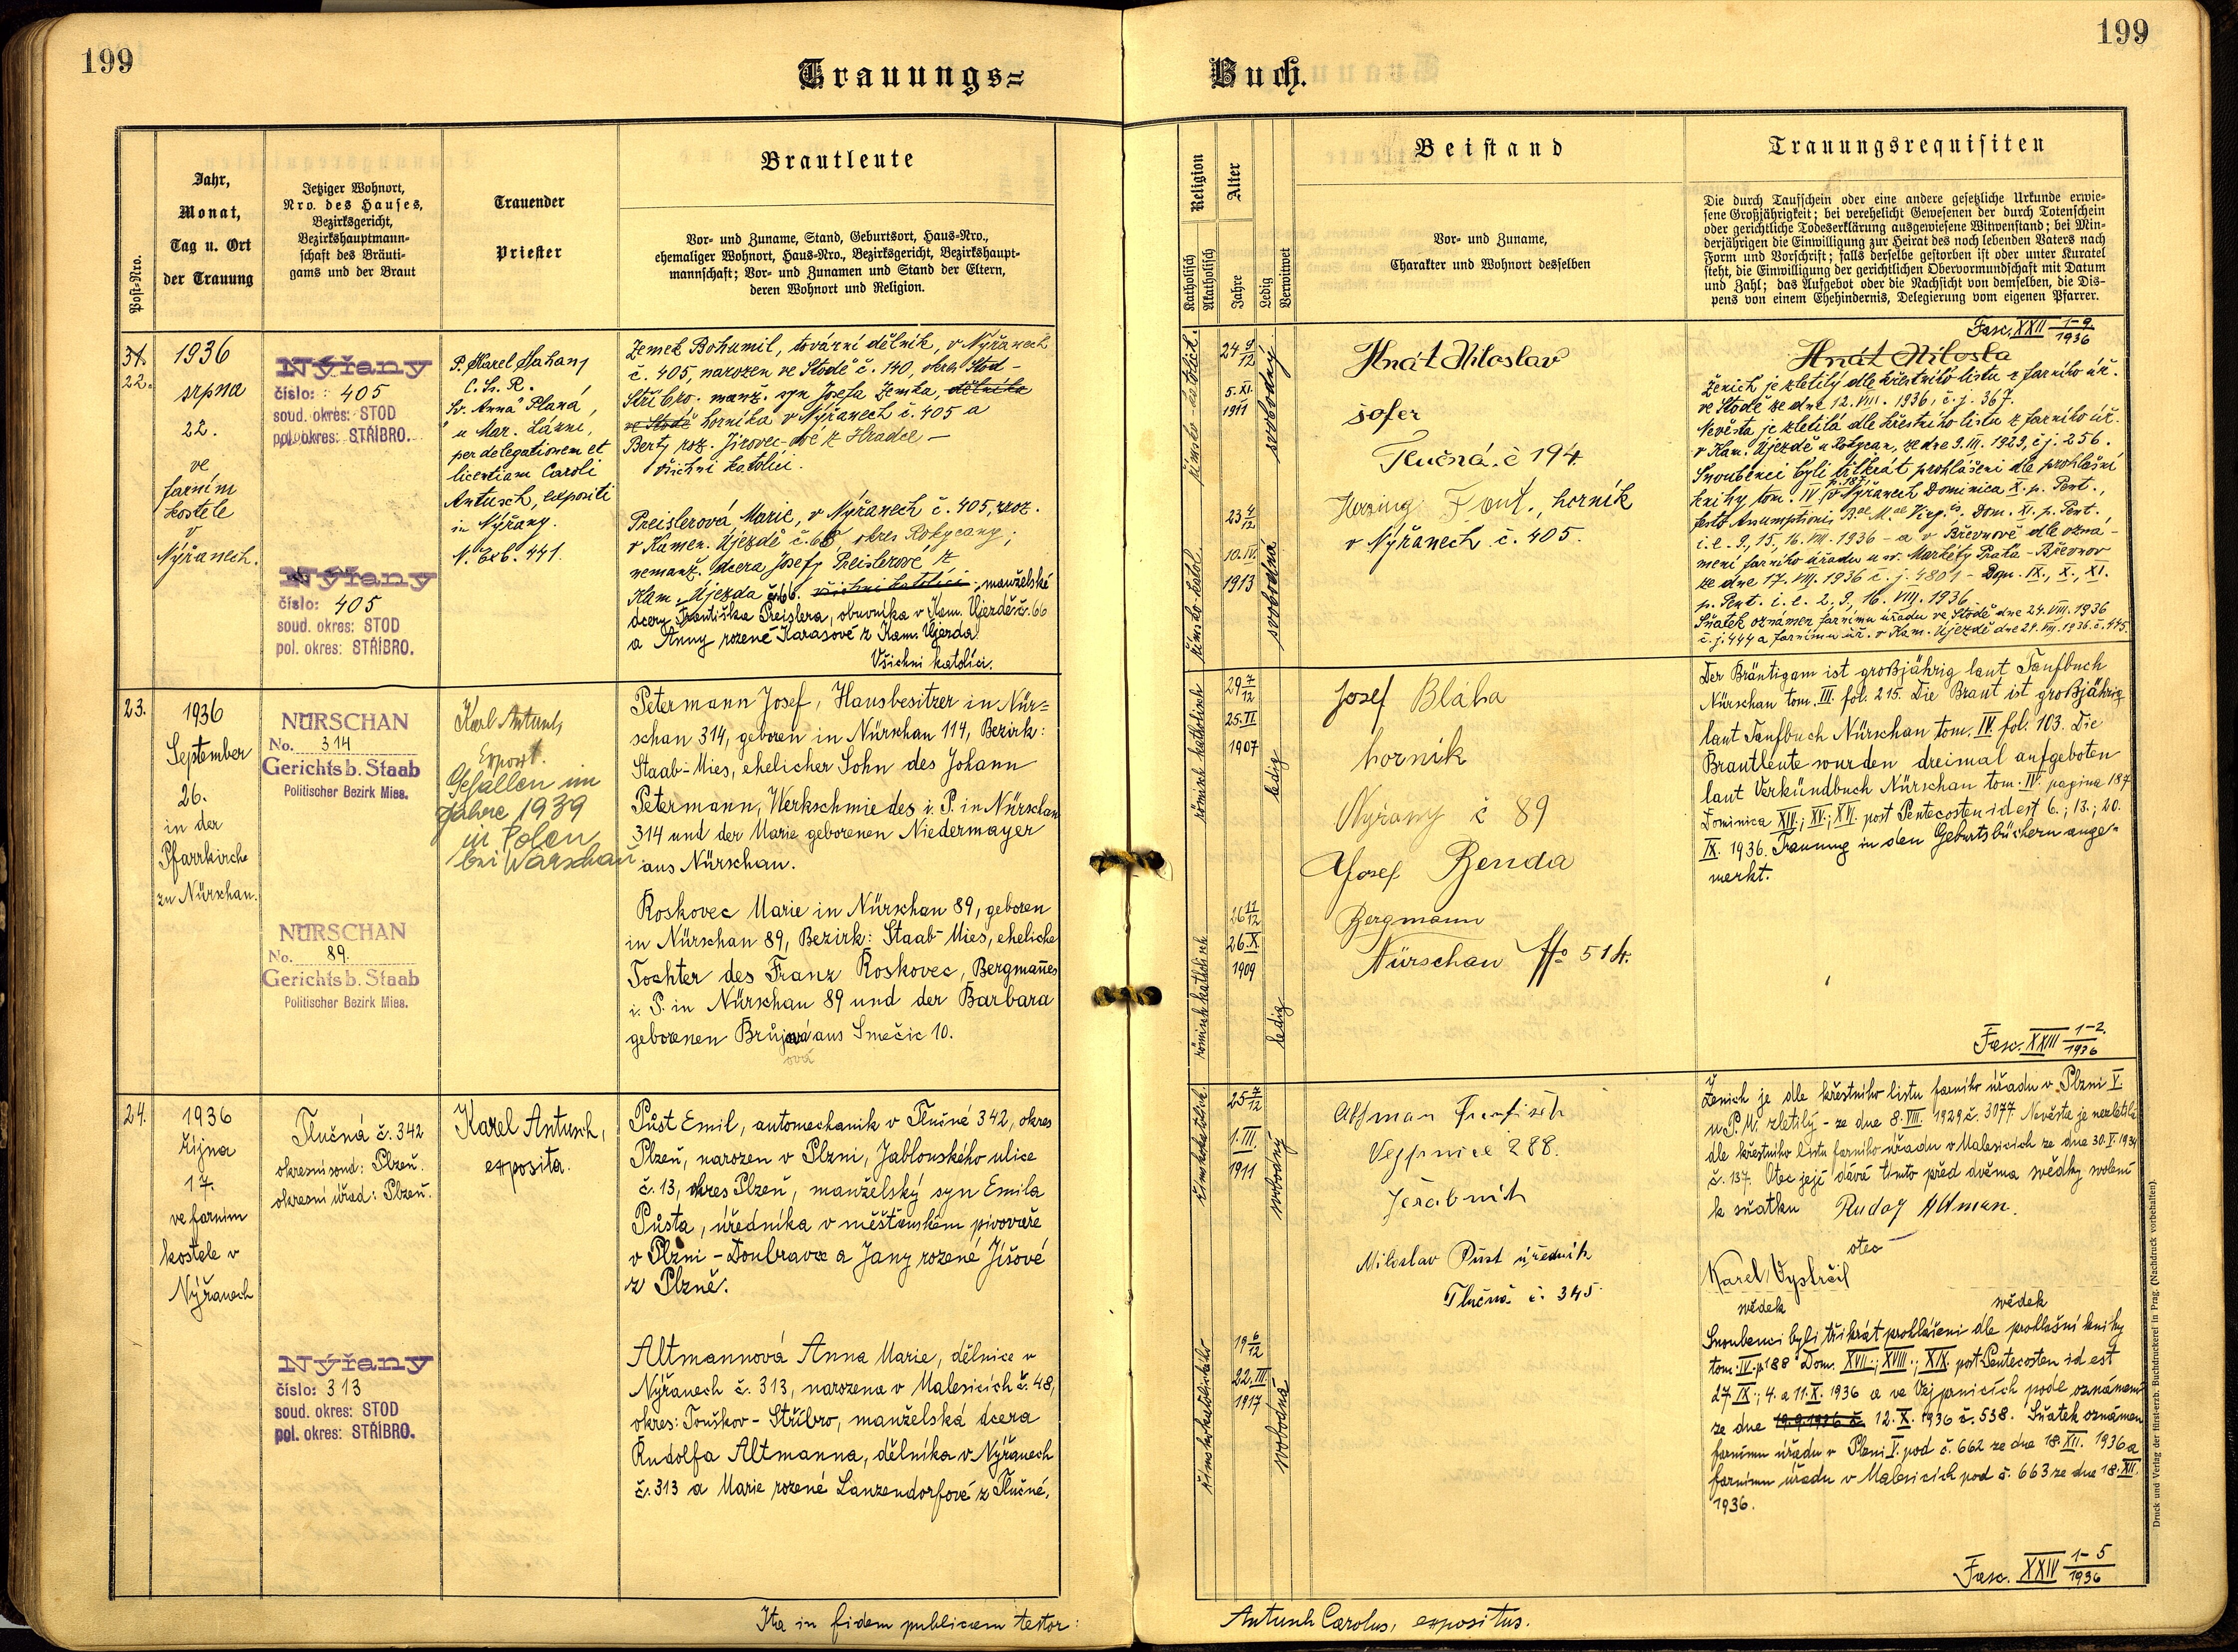 199
199
Trauungs=
Buch.
Post-Nro.
Jahr,
Monat,
Tag u. Ort
der Trauung
Jetziger Wohnort,
Nro. des Hauses,
Bezirksgericht,
Bezirkshauptmann-
schaft des Bräuti-
gams und der Braut
Trauender
Priester
Brautleute
Vor- und Zuname, Stand, Geburtsort, Haus-Nro.,
ehemaliger Wohnort, Haus-Nro., Bezirksgericht, Bezirkshaupt-
mannschaft; Vor- und Zunamen und Stand der Eltern,
deren Wohnort und Religion.
Religion
Katholisch
Akatholisch
Alter
Jahre
Ledig
Verwitwet
Beistand
Vor- und Zuname,
Charakter und Wohnort desselben
Trauungsrequisiten
Die durch Taufschein oder eine andere gesetzliche Urkunde erwie-
sene Großjährigkeit; bei verehelicht Gewesenen der durch Totenschein
oder gerichtliche Todeserklärung ausgewiesene Witwenstand; bei Min-
derjährigen die Einwilligung zur Heirat des noch lebenden Vaters nach
Form und Vorschrift; falls derselbe gestorben ist oder unter Kuratel
steht, die Einwilligung der gerichtlichen Obervormundschaft mit Datum
und Zahl; das Aufgebot oder die Nachsicht von demselben, die Dis-
pens von einem Ehehindernis, Delegierung vom eigenen Pfarrer.
22.
1936
srpna
22.
ve
farním
kostele
v
Nýřanech.
Nýřany
číslo: 405
soud. okres: STOD
pol. okres: STŘÍBRO.
Nýřany
číslo: 405
soud. okres: STOD
pol. okres: STŘÍBRO.
P. Karel
Sv. Anna Planá,
u Mar. Lázní,
per delegationem et
licentiam Caroli
Antusch, expositi
in Nýřany.
N. Exb. 441.
Zemek Bohumil, tovární dělník, v Nýřanech
č. 405, narozen ve Stodě č. 140, okres Stod -
Stříbro. manž. syn Josefa Zemka, dělníka
ve Stodě horníka v Nýřanech č. 405 a
Berty roz. Jírovec-ové z Hradce -
všichni katolíci.
Preislerová Marie, v Nýřanech č. 405, nroz.
v Kamen. Újezdě č. 66, okres Rokycany;
nemanž. dcera Josefy Preislerové z
Kam. Újezda č. 66. všichni katolíci; manželské
dcery Františka Preislera, obuvníka v Kam. Újezdě č. 66
a Anny rozené Karasové z Kam. Újezda
Všichni katolíci.
římsko-katolick.
24 9/12
5. XI.
1911
svobodný
římsko-katol.
23 4/12
10. IV.
1913
svobodná
Hnát Miloslav
šofer
Tlučná. č 194.
Herzing Font., horník
v Nýřanech č. 405.
Fasc. XXII 1-9/1936
Ženich je zletilý dle křestního listu z farního úř.
ve Stodě ze dne 12. VIII. 1936, č. j. 367.
Nevěsta je zletilá dle křestního listu z farního úř.
v Kam. Újezdě u Rokycan, ze dne 9. III. 1929, č. j. 256.
Snoubenci byli třikrát prohlášeni dle prohlášní
knihy tom. IV p. 187 v Nýřanech Dominica X. p. Pent.,
festo Assumptionis B.ae M.ae Virg.is, Dom. XI. p. Pent.
i. e. 9, 15, 16. VIII. 1936 - a v Břevnově dle ozná-
mení farního úřadu u sv. Markéty Praha - Břevnov
ze dne 17. VIII. 1936 č. j. 4801 - Dom. IX., X., XI.
p. Pent. i. e. 2., 9, 16. VIII. 1936.
Sňatek oznámen farnímu úřadu ve Stodě dne 24. VIII. 1936
č. j. 444 a farnímu úř. v Kam. Újezdě dne 24. VIII. 1936. č. 445.
23.
1936
September
26.
in der
Pfarrkirche
zu Nürschan.
NÜRSCHAN
No. 314
Gerichtsb. Staab
Politischer Bezirk Mies.
NÜRSCHAN
No. 89.
Gerichtsb. Staab
Politischer Bezirk Mies.
Karl Antusch,
Exposit.
Gefallen im
Jahre 1939
in Polen
bei Warschau
Petermann Josef, Hausbesitzer in Nür=
schan 314, geboren in Nürschan 114, Bezirk:
Staab-Mies, ehelicher Sohn des Johann
Petermann, Werkschmiedes i. P. in Nürschan
314 und der Marie geborenen Niedermayer
aus Nürschan.
Roskovec Marie in Nürschan 89, geboren
in Nürschan 89, Bezirk: Staab-Mies, eheliche
Tochter des Franz Roskovec, Bergmannes
i. P. in Nürschan 89 und der Barbara
geborenen Brůjová aus Smečic 10.
ová
römisch katholisch
29 7/12
25. II
1907
ledig
römisch katholisch
26 11/12
26. X.
1909
ledig
Josef Bláha
horník
Nýřany č 89
Josef Benda
Bergmann
Nürschan No 514.
Der Bräutigam ist großjährig laut Taufbuch
Nürschan tom. III. fol. 215. Die Braut ist großjährig
laut Taufbuch Nürschan tom. IV. fol. 103. Die
Brautleute wurden dreimal aufgeboten
laut Verkündbuch Nürschan tom. IV. pagina 187
Dominica XIV.; XV.; XVI. post Pentecosten id est 6.; 13.; 20.
IX. 1936. Trauung in den Geburtsbüchern ange=
merkt.
Fasc. XXIII 1-2./1936
24.
1936
října
17.
ve farním
kostele v
Nýřanech
Tlučná č. 342
okresní soud: Plzeň.
okresní úřad: Plzeň.
Nýřany
číslo: 313
soud. okres: STOD
pol. okres: STŘÍBRO.
Karel Antusch,
exposita.
Půst Emil, automechanik v Tlučné 342, okres
Plzeň, narozen v Plzni, Jablonského ulice
č. 13, okres Plzeň, manželský syn Emila
Půsta, úředníka v měšťanském pivovaře
v Plzni - Doubravce a Jany rozené Jíšové
z Plzně.
Altmannová Anna Marie, dělnice v
Nýřanech č. 313, narozena v Malesicích č. 48,
okres: Touškov - Stříbro, manželská dcera
Rudolfa Altmanna, dělníka v Nýřanech
č. 313 a Marie rozené Lanzendorfové z Tlučné.
římskokatolick.
25 7/12
1. III.
1911
svobodný
římskokatolického
19 6/12
22. III.
1917
svobodná
Altman František
Vejprnice 288.
Jeřábník
Miloslav Půst úředník
Tlučná č. 345.
Ženich je dle křestního listu farního úřadu v Plzni V.
u P. M. zletilý - ze dne 8. VIII. 1929 č. 3077 Nevěsta je nezletilá
dle křestního listu farního úřadu v Malesicích ze dne 30. V. 1934
č. 137. Otec její dává tímto před dvěma svědky svolení
k sňatku Rudolf Altman.
otec
Karel Vystrčil
svědek
svědek
Snoubenci byli třikrát prohlášeni dle prohlášní knihy
tom. IV. p. 188 Dom. XVII.; XVIII.; XIX. post Pentecosten id est
27. IX.; 4. a 11. X. 1936 a ve Vejprnicích podle oznámení
ze dne 19. 9. 1936 č. 12. X. 1936 č. 538. Sňatek oznámen
farnímu úřadu v Plzni V. pod č. 662 ze dne 18. XII. 1936 a
farnímu úřadu v Malesicích pod č. 663 ze dne 18. XII.
1936.
Fasc. XXIV 1-5/1936
Ita in fidem publicam testor:
Antusch Carolus, expositus.
Druck und Verlag der fürst-erzb. Buchdruckerei in Prag. (Nachdruck vorbehalten).